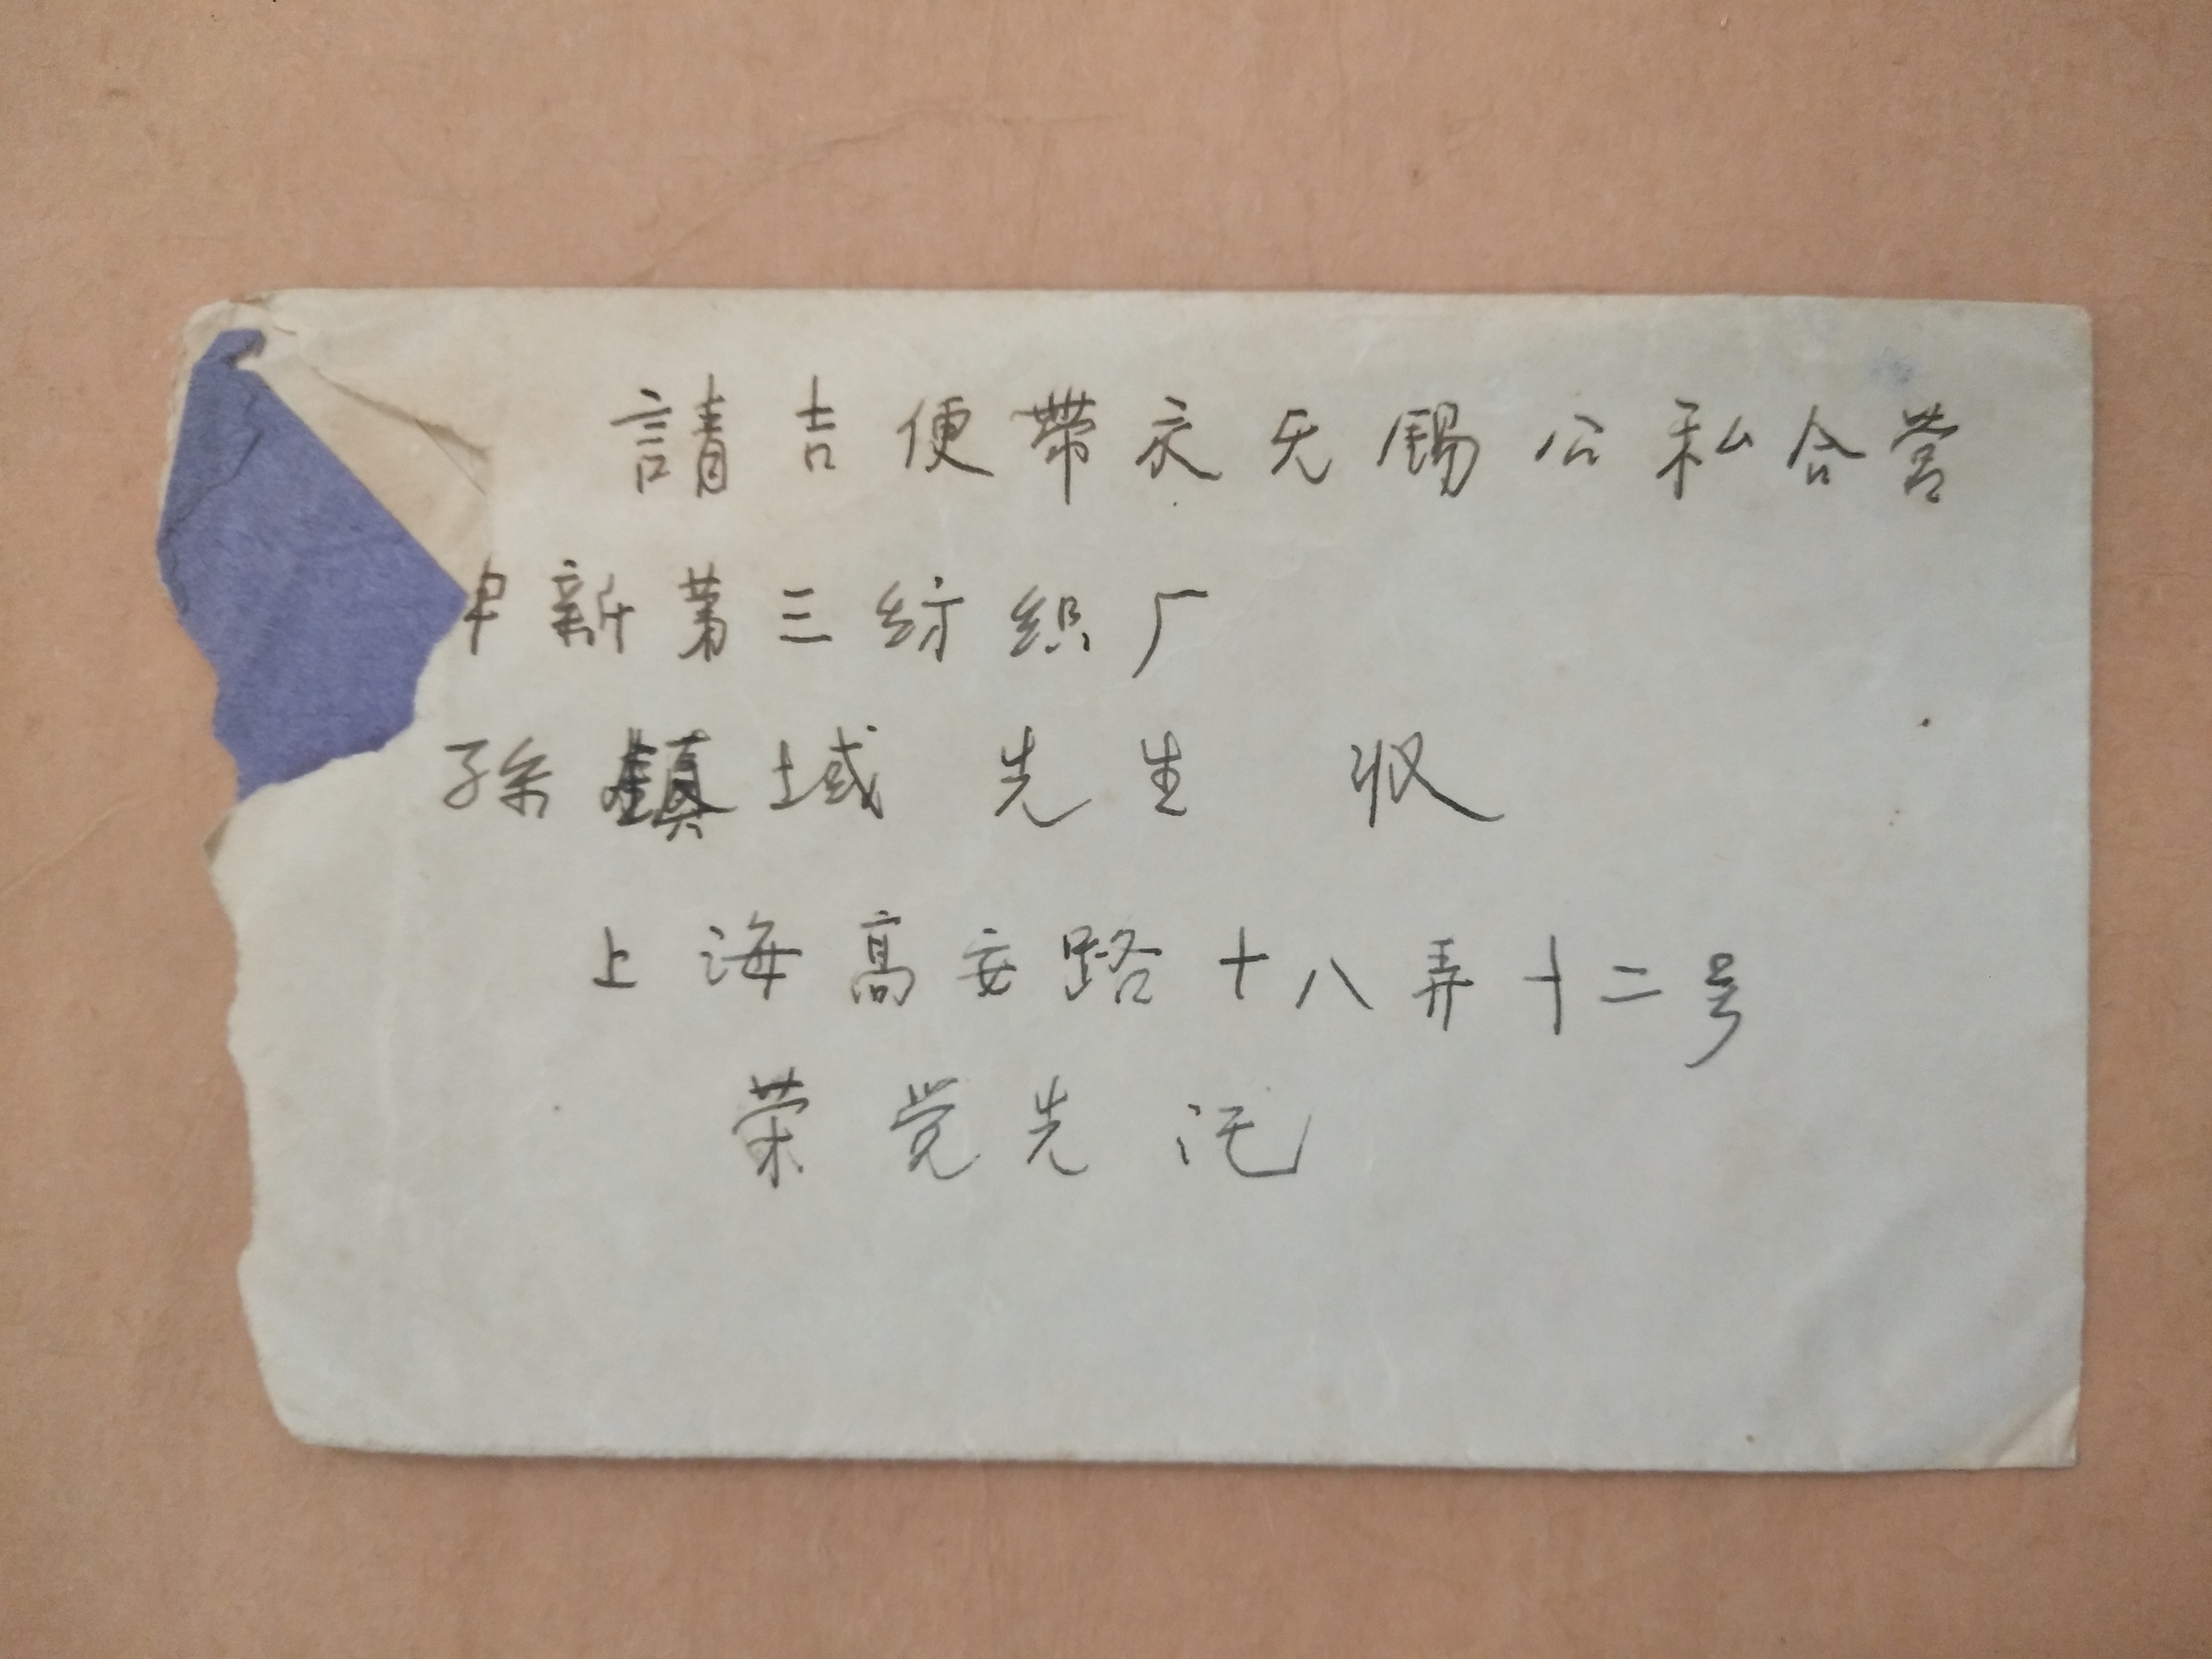 請吉便帶交无錫公私合营
申新第三纺织厂
孫鎮域 先生 收
上海高安路十八弄十二号
荣觉先 讬